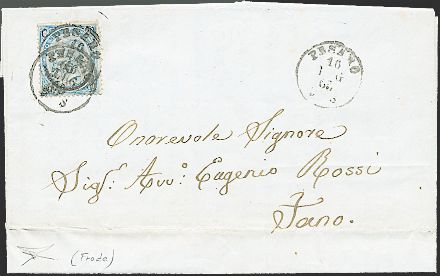 PESARO
16
PESARO
16
65
Onorevole Signore
Sigr. Avvo. Eugenio Rossi
Fano.
(Frode)